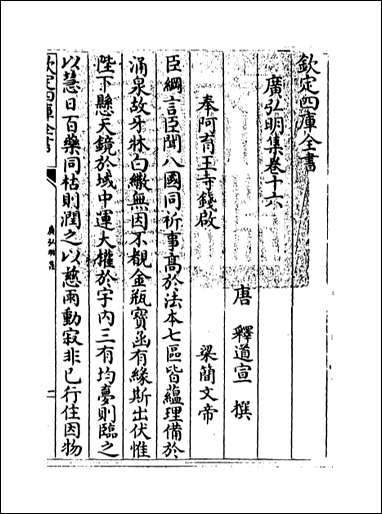 欽定四庫全書
廣弘明集卷十六
唐 釋道宣 撰
奉阿育王寺錢啟 梁簡文帝
臣綱言臣聞八國同祈事髙於法本七區皆蘊理備於
涌泉故牙牀白繖無因不覩金瓶寳函有緣斯出伏惟
陛下懸天鏡於域中運大權於宇内三有均夣則臨之
以慧日百藥同枯則潤之以慈雨動寂非已行住因物
欽定四庫全書
廣弘明集